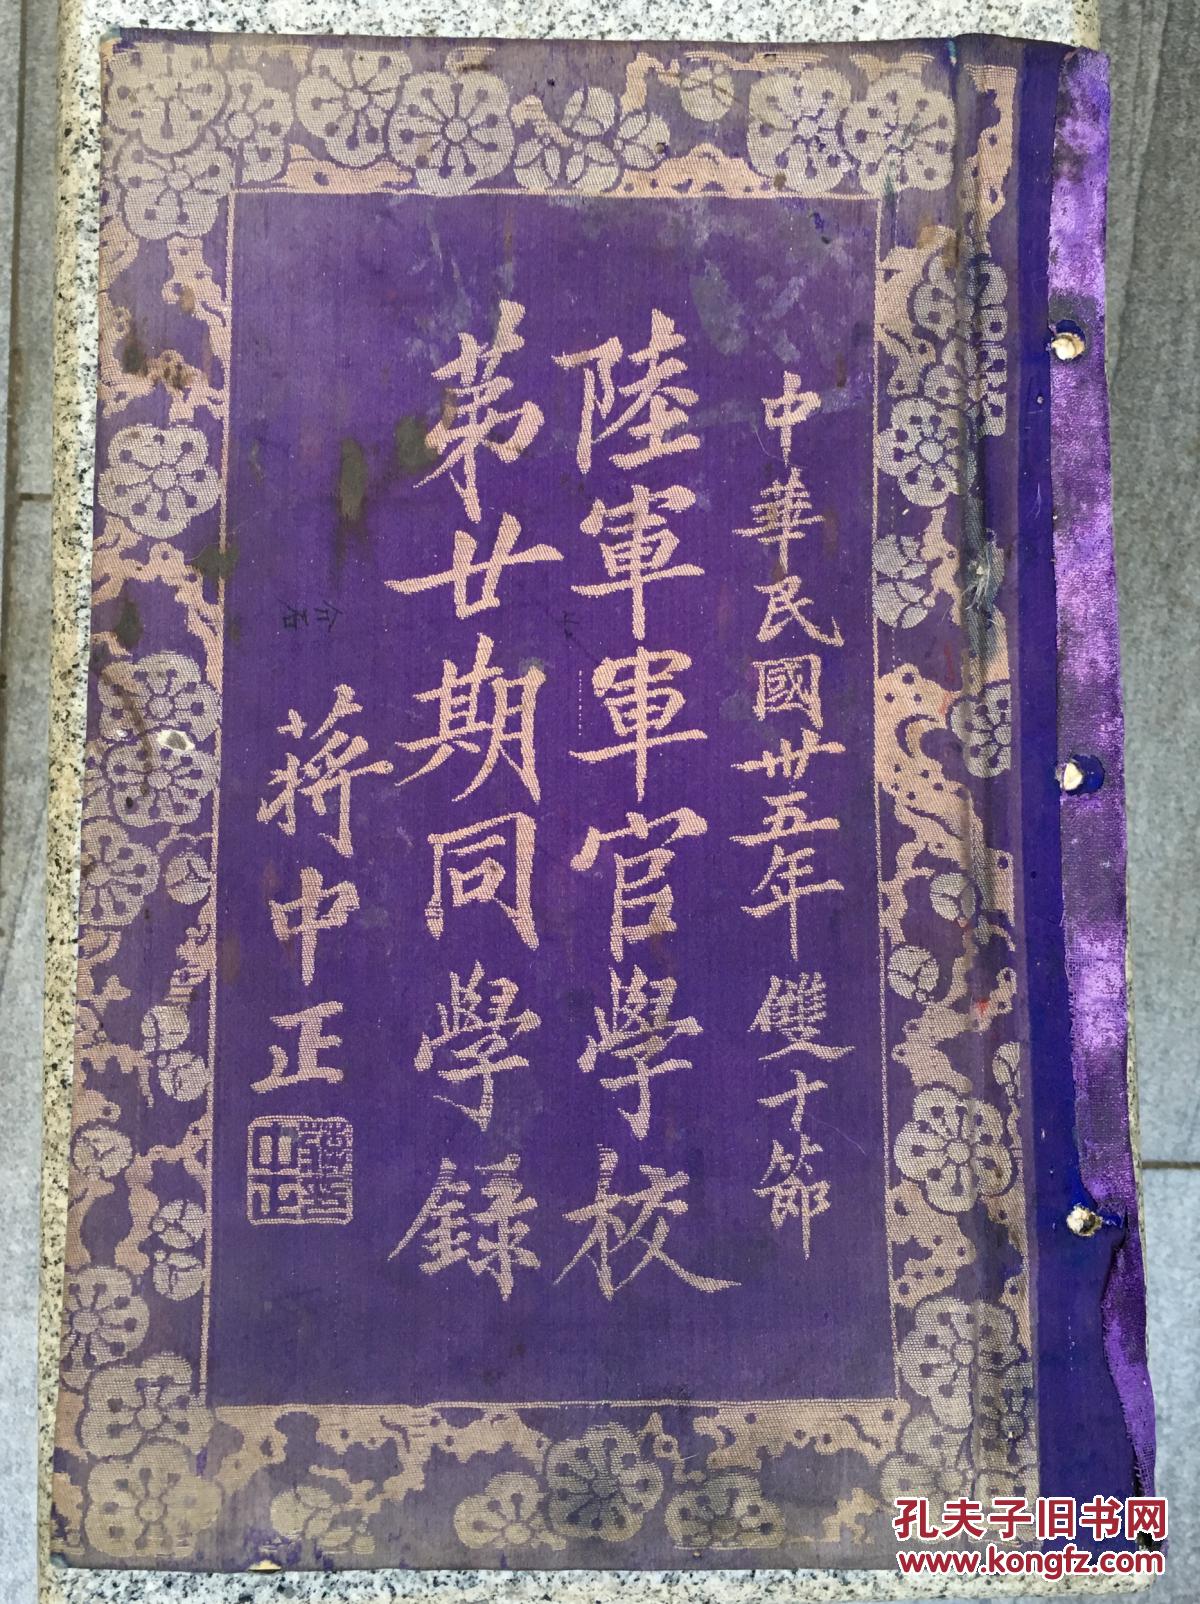 中華民國卅五年雙十節
陸軍軍官學校
第廿期同學錄
蔣中正
蔣中正
介石
孔夫子旧书网
www.kongfz.com